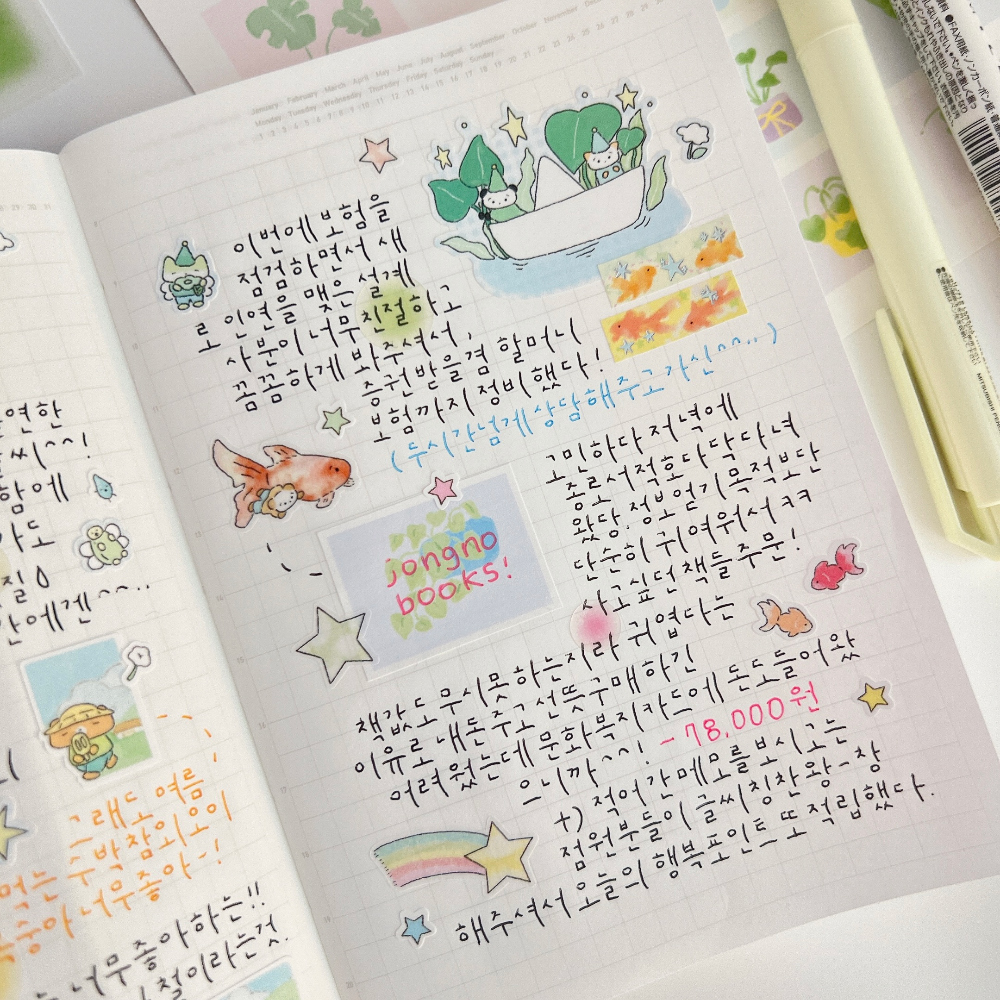 January · February · March · April · May · June · July · August · September · October · November
Monday · Tuesday · Wednesday · Thursday · Friday · Saturday · Sunday
이번에 보험을
점검하면서 새
로 인연을 맺은 설계
사분이 너무 친절하고
꼼꼼하게 봐주셔서,
증권받을겸 할머니
보험까지 정비했다!
(두시간넘게상담해주고가신^^..)
고민하다 저녁에
종로서적호다닥다녀
왔당. 정보얻기목적보단
단순히 귀여워서ㅋㅋ
사고싶던책들주문!
jongno
books!
책값도무시못하는지라 귀엽다는
이유로 내돈주고선뜻구매하긴
어려웠는데문화복지카드에 돈도들어왔
으니까^^! -78,000원
+) 적어간메모를보시고는
점원분들이글씨칭찬왕-창
해주셔서 오늘의 행복포인트 또 적립했다.
연한
씨^^!
함에
가도
질
안에겐^^..
그래도 여름
먹는 수박참외오이
너무좋아-!
너무 좋아하는!!
철이라는것.